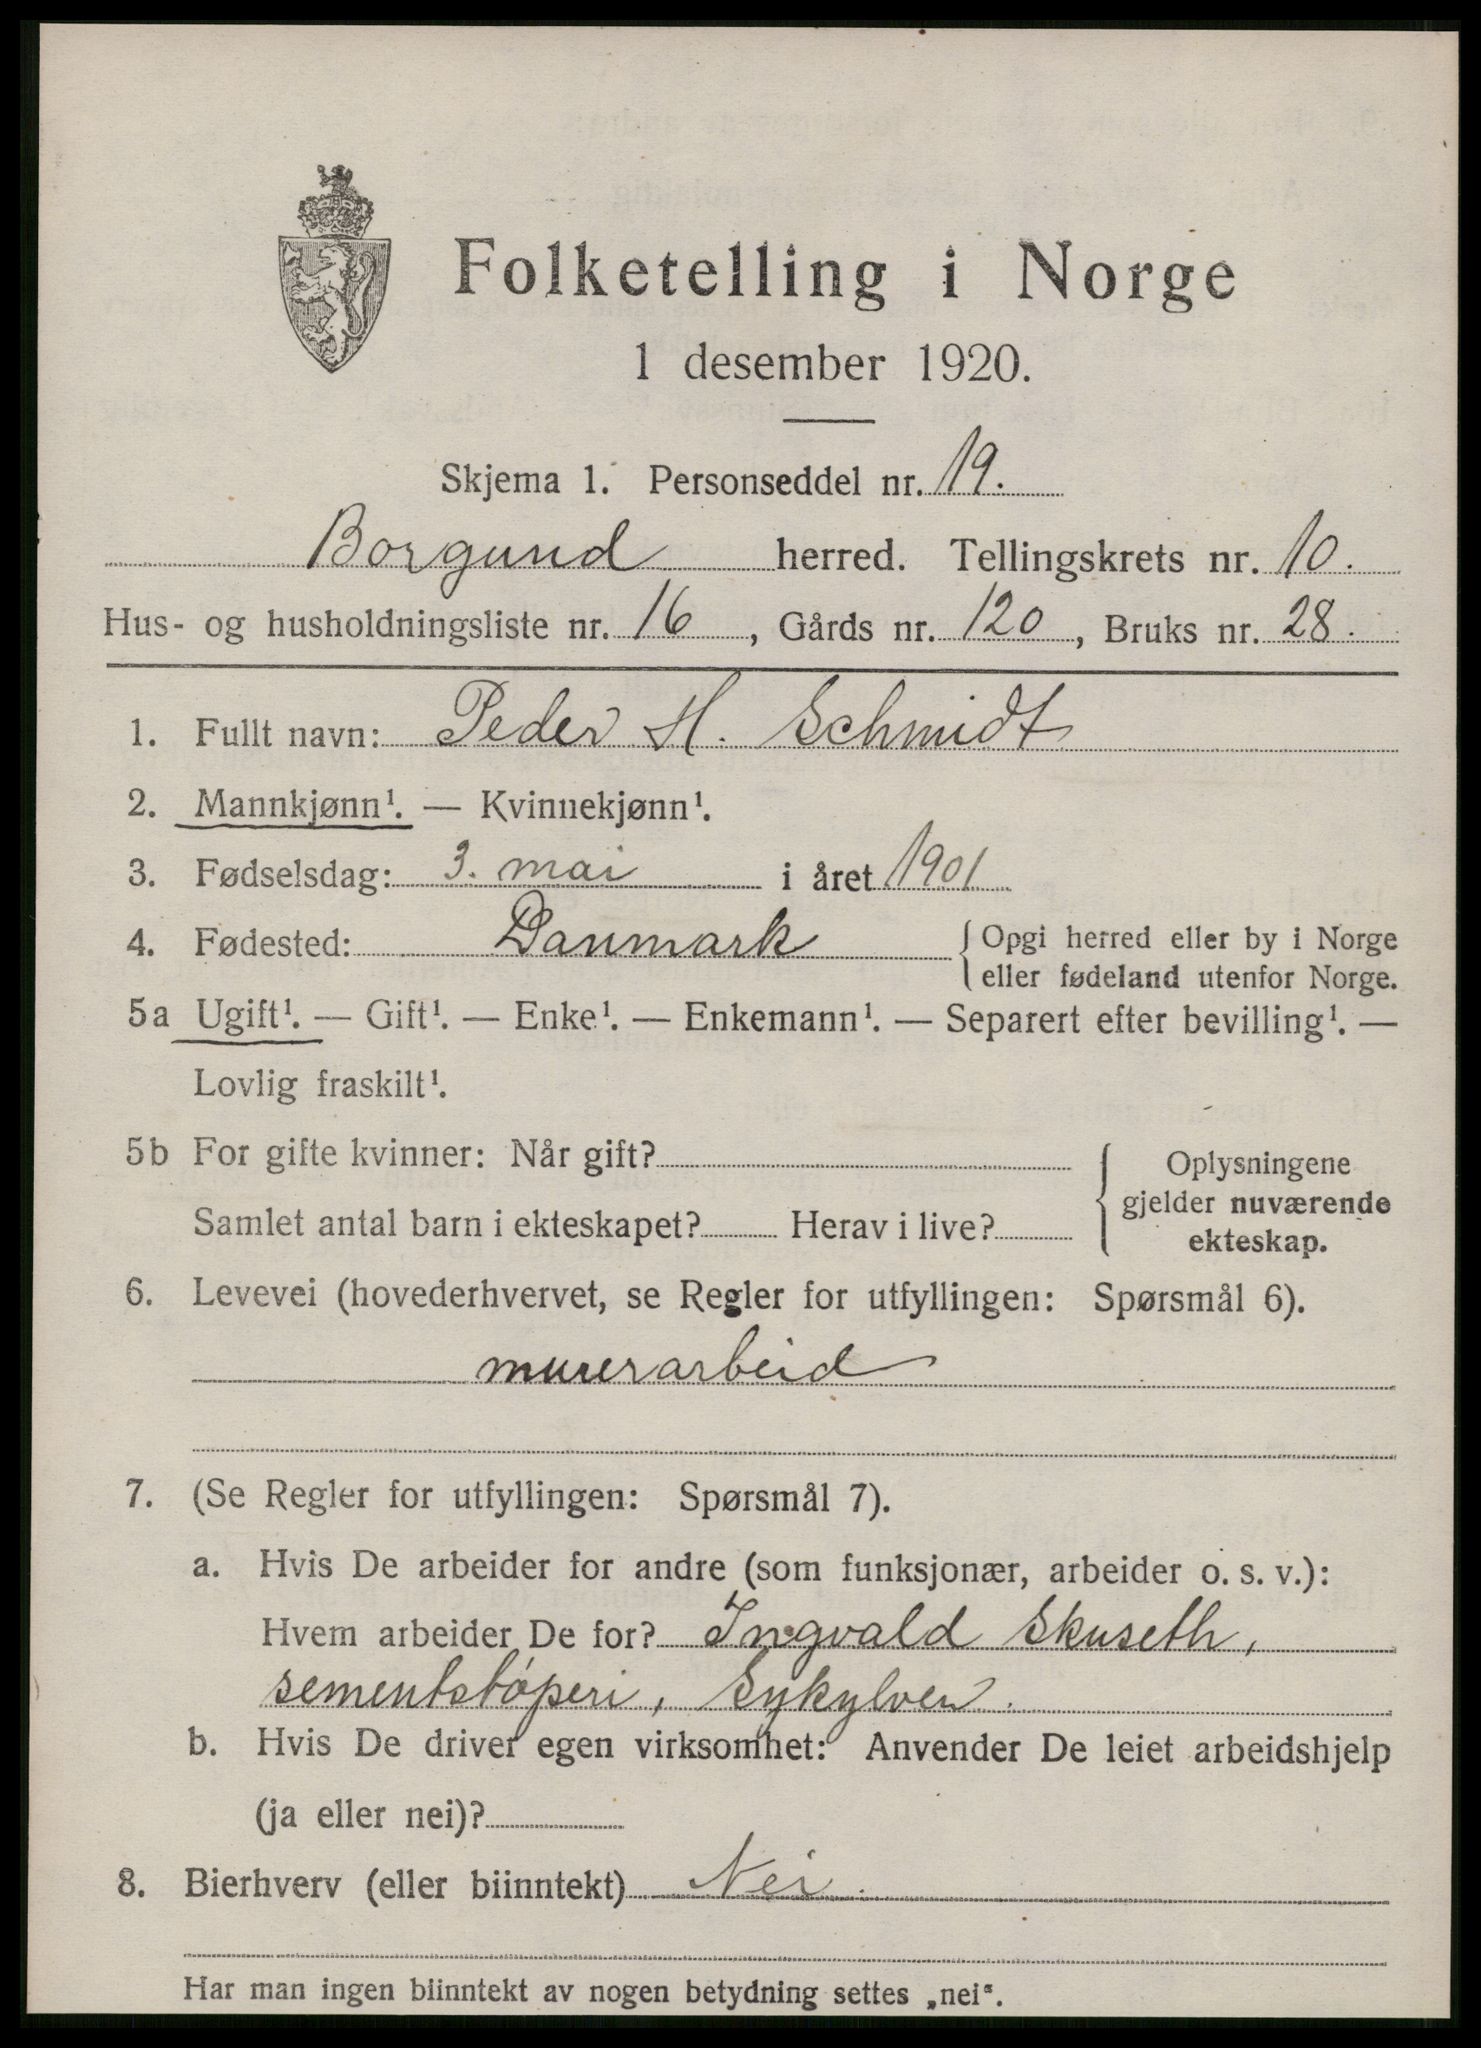 Folketelling i Norge
1 desember 1920.
Skjema 1. Personseddel nr. 19.
Borgund herred. Tellingskrets nr. 10.
Hus- og husholdningsliste nr. 16, Gårds nr. 120, Bruks nr. 28.
1. Fullt navn: Peder H. Schmidt
2. Mannkjønn¹. — Kvinnekjønn¹.
3. Fødselsdag: 3. mai i året 1901
4. Fødested: Danmark { Opgi herred eller by i Norge
eller fødeland utenfor Norge.
5a Ugift¹. — Gift¹. — Enke¹. — Enkemann¹. — Separert efter bevilling¹. —
Lovlig fraskilt¹.
5b For gifte kvinner: Når gift?
Samlet antal barn i ekteskapet? Herav i live?
{ Oplysningene
gjelder nuværende
ekteskap.
6. Levevei (hovederhvervet, se Regler for utfyllingen: Spørsmål 6).
murerarbeid
7. (Se Regler for utfyllingen: Spørsmål 7).
a. Hvis De arbeider for andre (som funksjonær, arbeider o. s. v.):
Hvem arbeider De for? Ingvald Skuseth,
sementstöperi, Sykylven.
b. Hvis De driver egen virksomhet: Anvender De leiet arbeidshjelp
(ja eller nei)?
8. Bierhverv (eller biinntekt) Nei.
Har man ingen biinntekt av nogen betydning settes „nei“.